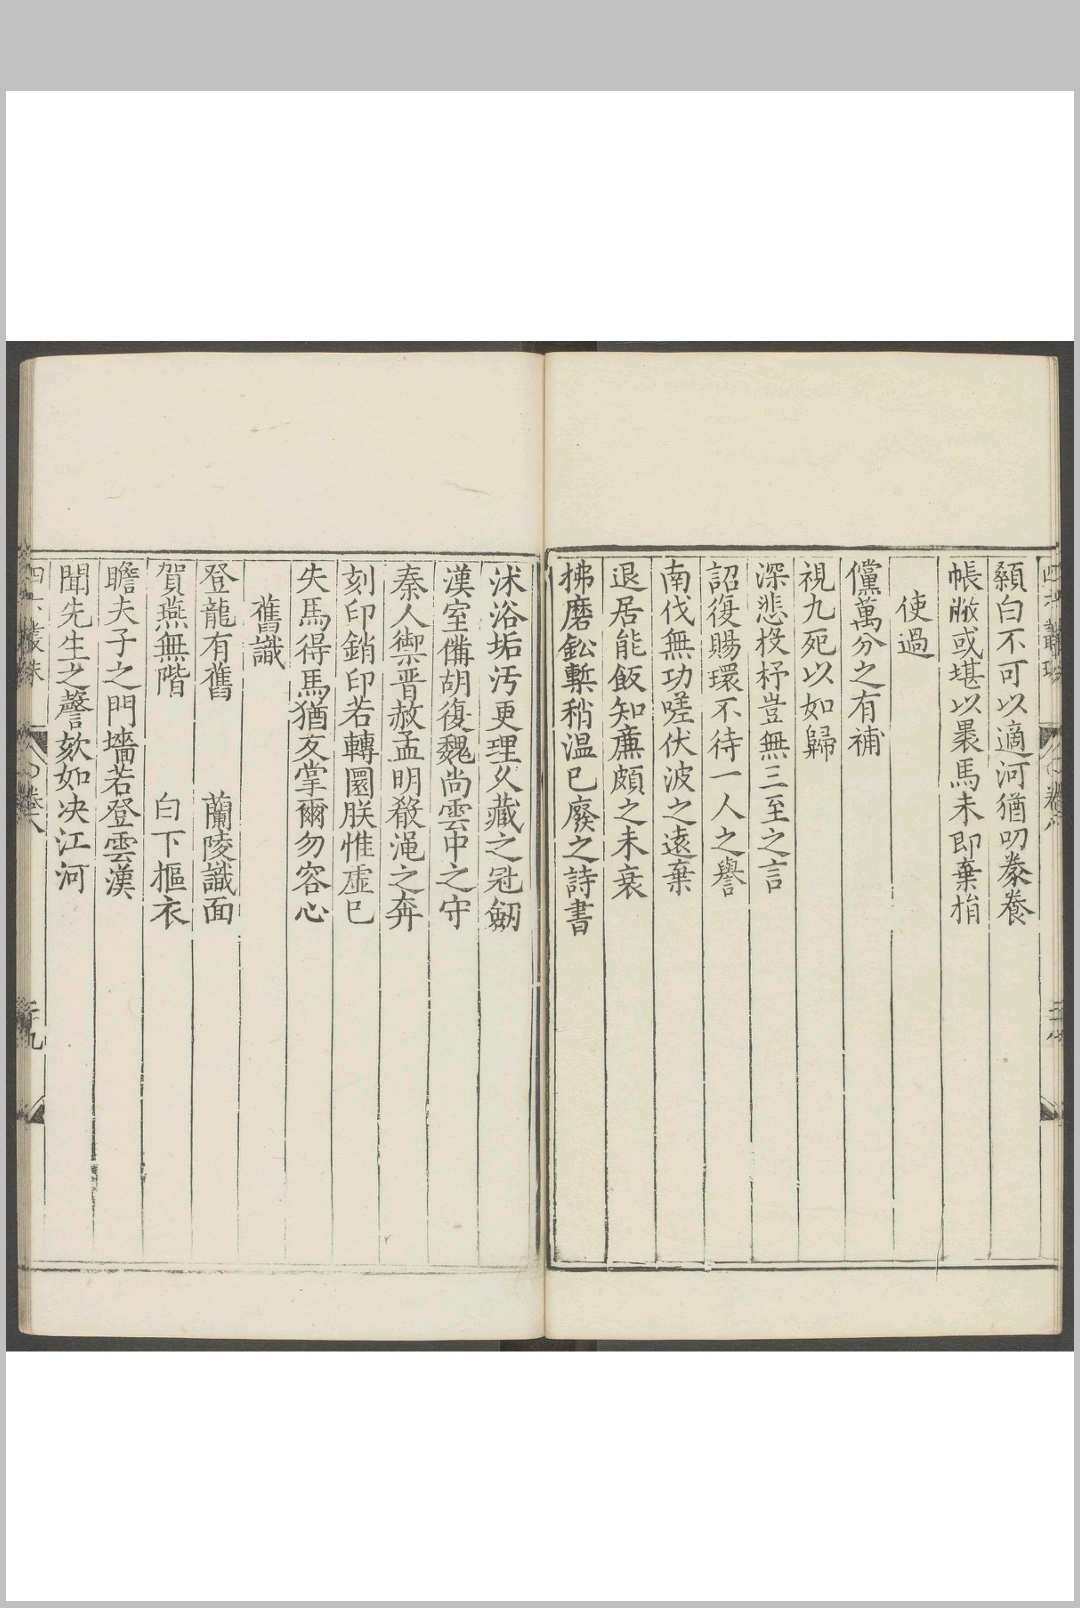 顙白不可以適河猶叨豢養
帷敝或堪以褁馬未即棄捐
使過
儻萬分之有補
視九死以如歸
深悲投杼豈無三至之言
詔復賜環不待一人之譽
南伐無功嗟伏波之遠棄
退居能飯知廉頗之未衰
拂磨鈆槧稍温已廢之詩書
沭浴垢汚更理乆藏之冠劒
漢室備胡復魏尚雲中之守
秦人禦晋赦孟明殽澠之奔
刻印銷印若轉圜朕惟虚已
失馬得馬猶反掌爾勿容心
舊識
登龍有舊 蘭陵識面
賀燕無階 白下摳衣
瞻夫子之門墻若登雲漢
聞先生之謦欬如决江河
四六叢珠 卷八 二十九